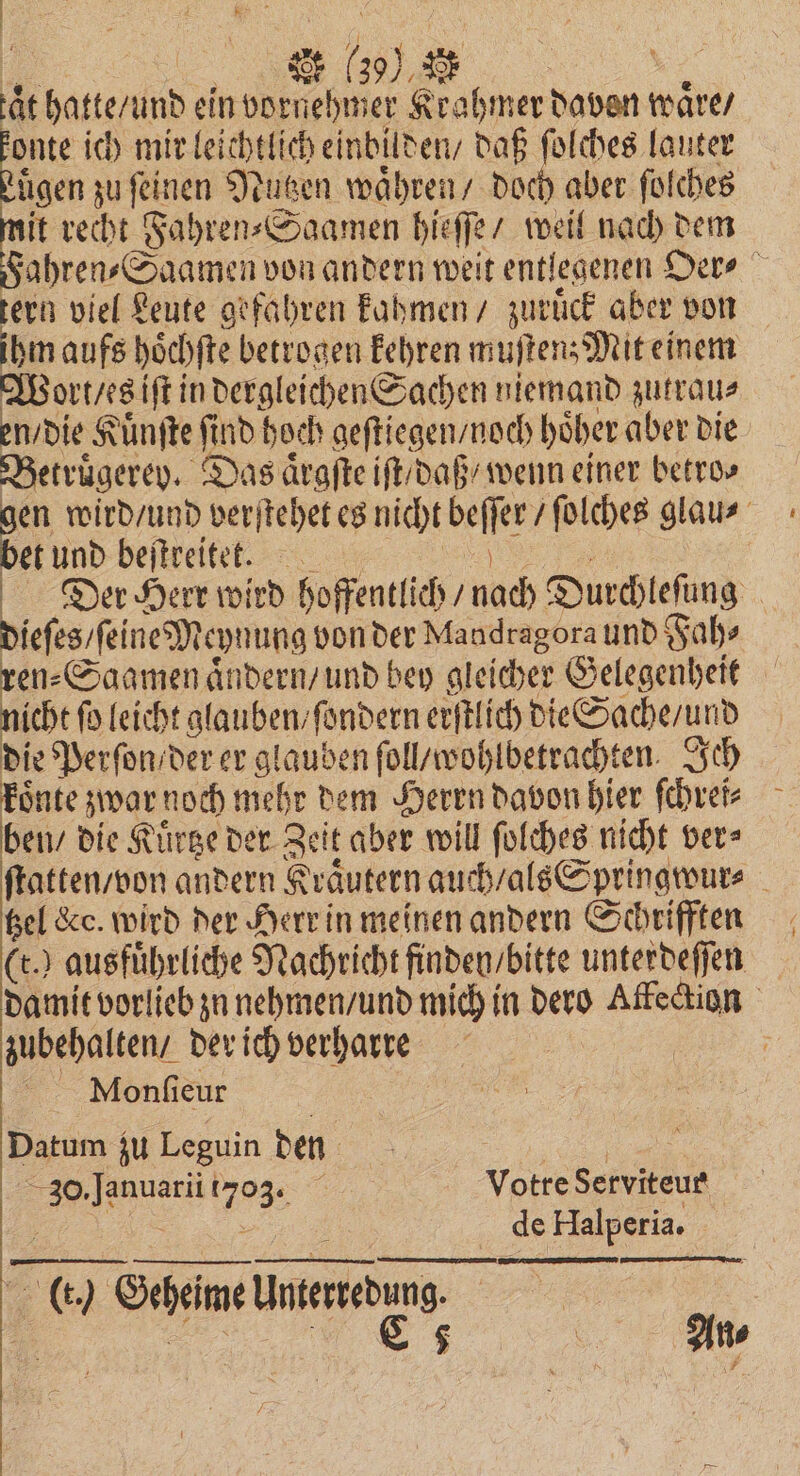 ❁ (39) ❁
tåt hatte/und ein vornehmer Krahmer davon wåre/
konte ich mir leichtlich einbilden/ daß ſolches lauter
Lůgen zu ſeinen Nutzen wåhren/ doch aber ſolches
mit recht Fahren⸗Saamen hieſſe/ weil nach dem
Fahren⸗Saamen von andern weit entlegenen Oer⸗
tern viel Leute gefahren kahmen/ zurůck aber von
ihm aufs hoͤchſte betrogen kehren muſten; Mit einem
Wort/es iſt in dergleichen Sachen niemand zutrau⸗
en/die Kůnſte ſind hoch geſtiegen/noch hoͤher aber die
Betrůgerey. Das årgſte iſt/daß/wenn einer betro⸗
gen wird/und verſtehet es nicht beſſer/ſolches glau⸗
bet und beſtreitet.
Der Herr wird hoffentlich/nach Durchleſung
dieſes/ſeine Meynung von der Mandragora und Fah⸗
ren⸗Saamen åndern/und bey gleicher Gelegenheit
nicht ſo leicht glauben/ſondern erſtlich die Sache/und
die Perſon/der er glauben ſoll/wohlbetrachten. Ich
koͤnte zwar noch mehr dem Herrn davon hier ſchrei⸗
ben/ die Kůrtze der Zeit aber will ſolches nicht ver⸗
ſtatten/von andern Kråutern auch/als Springwur⸗
tzel &c. wird der Herr in meinen andern Schrifften
(t.) ausfůhrliche Nachricht finden/bitte unterdeſſen
damit vorlieb zn nehmen/und mich in dero Affection
zubehalten/ der ich verharre
Monſieur
Datum zu Leguin den
30. Januarii 1703. Votre Serviteur
de Halperia.
(t.) Geheime Unterredung.
C 5 An⸗